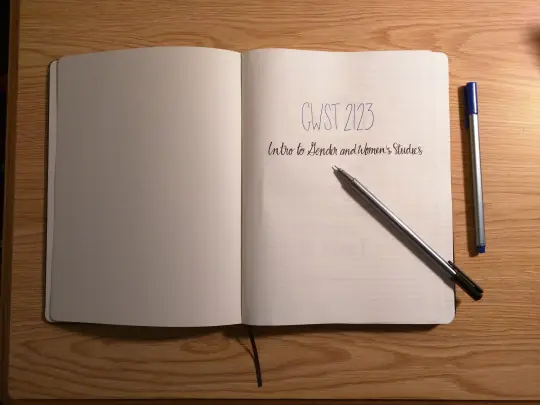 GWST 2123
Intro to Gender and Women's Studies